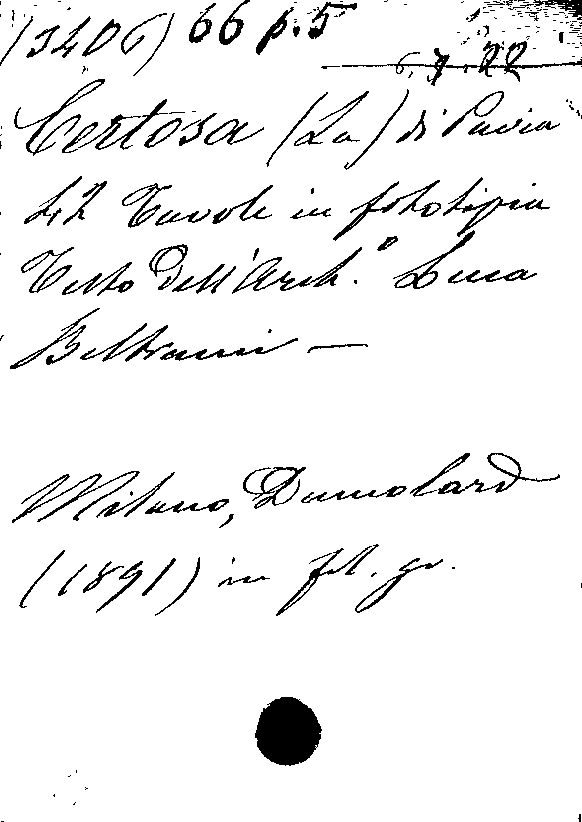 (3406) 66 p. 5
6. 7. 22
Certosa (La) di Pavia
42 Tavole in fototipia
Testo dell'Arch.° Luca
Beltrami —
Milano, Dumolard
(1891) in fol. gr.